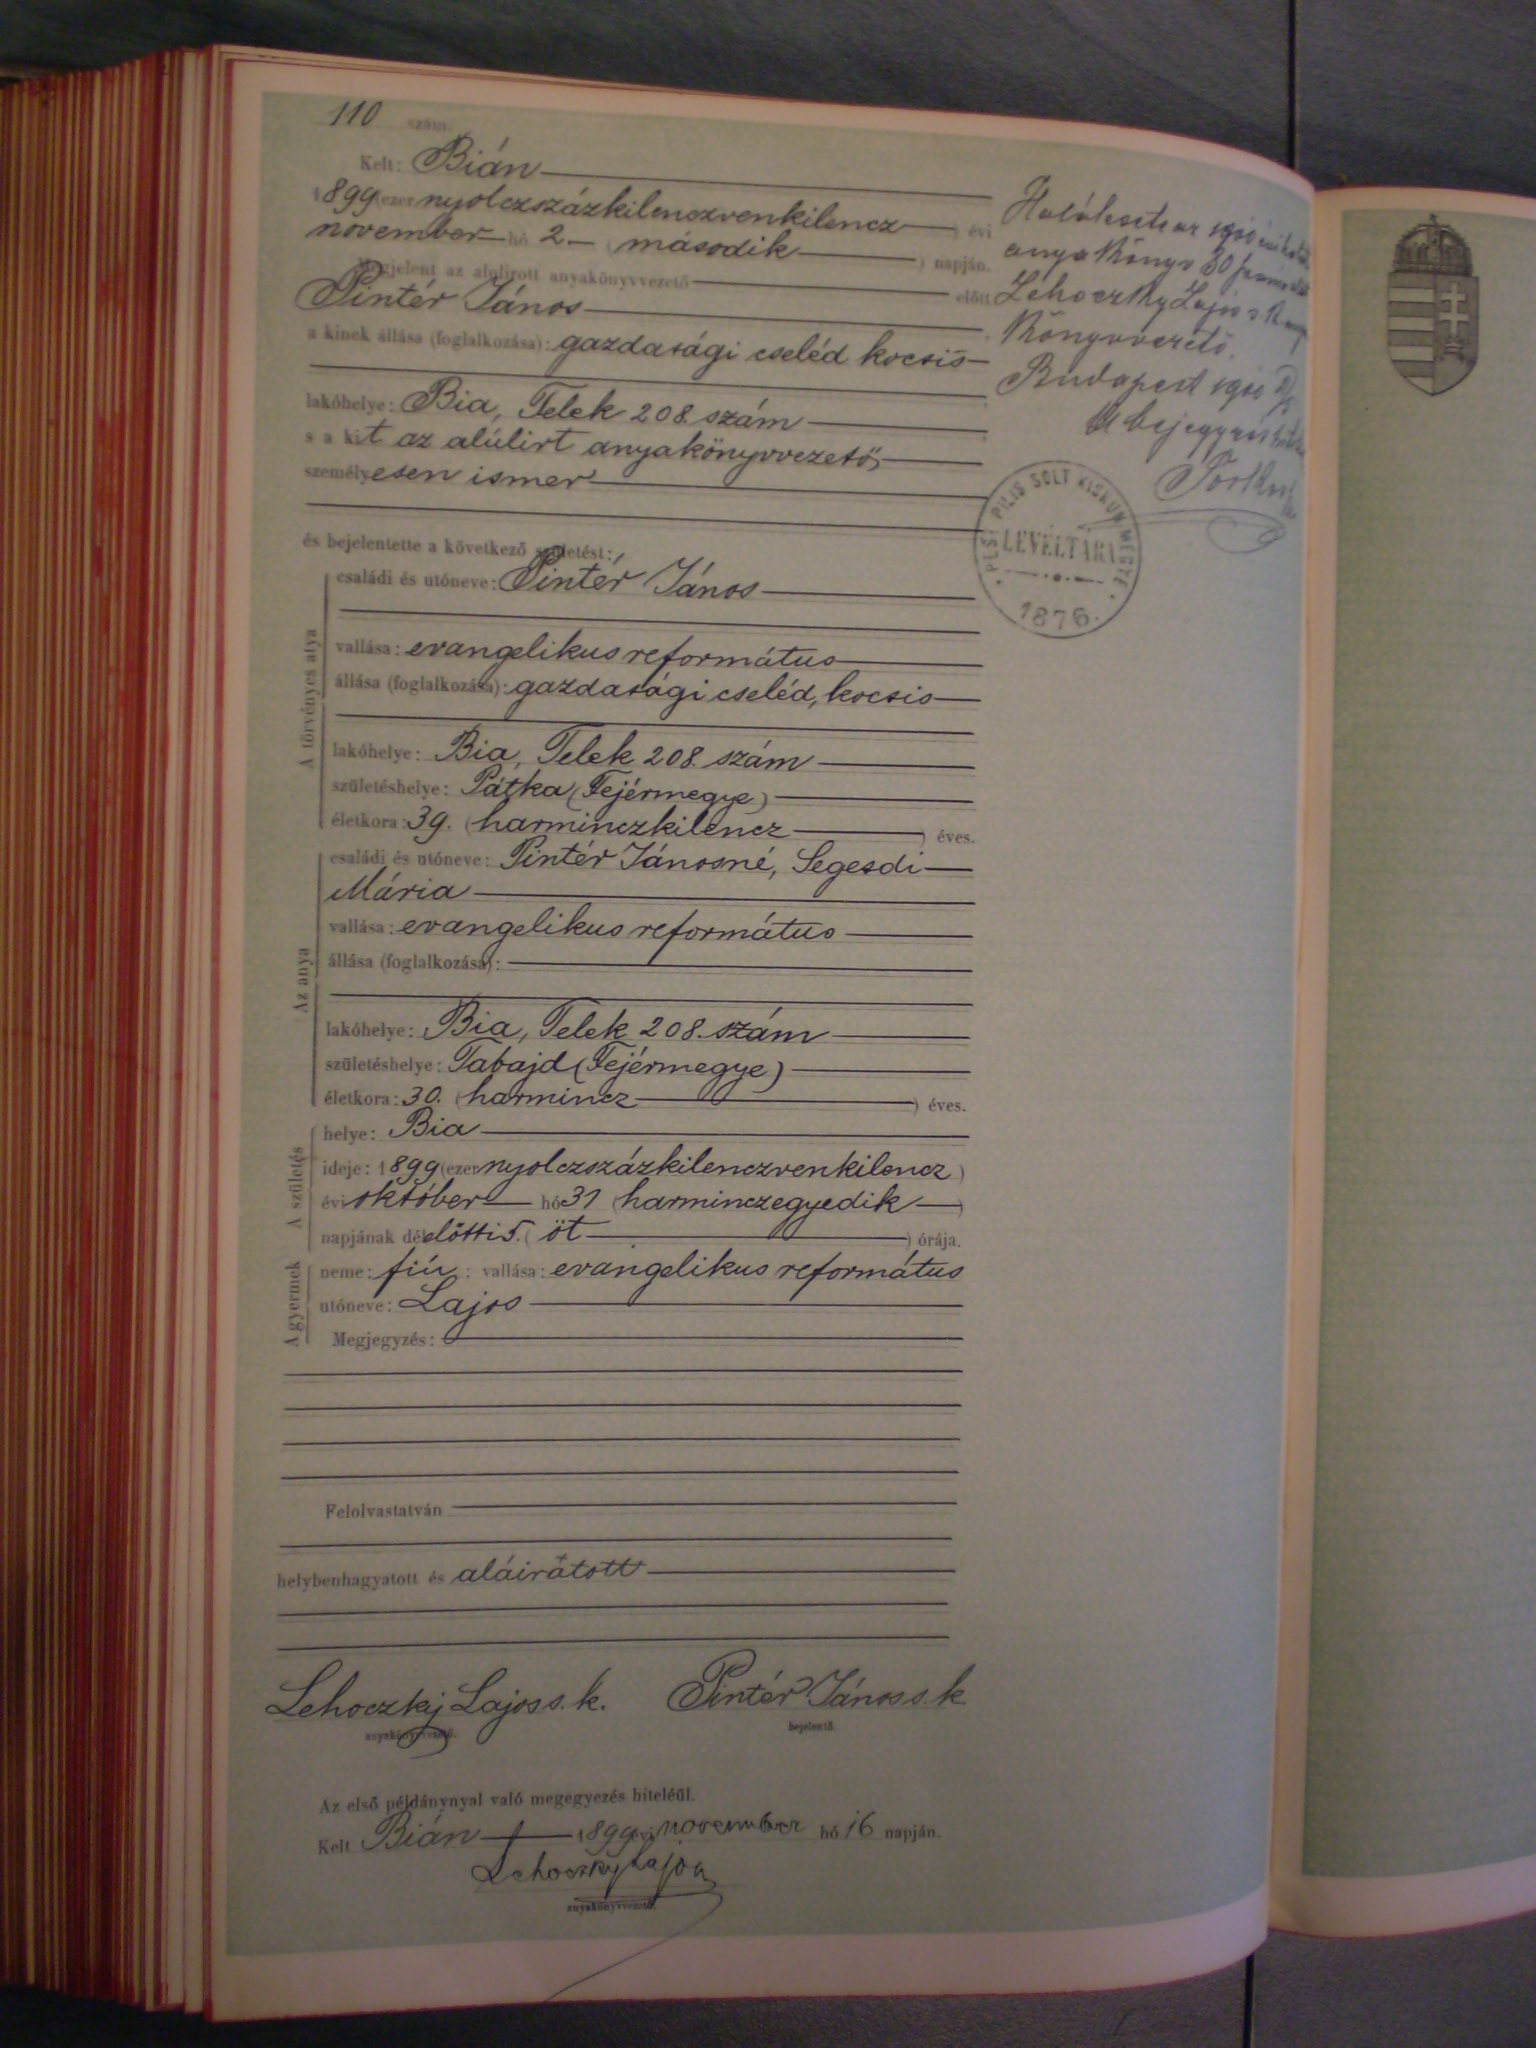 110 szám.
Kelt: Bián
1899 (ezer nyolczszázkilenczvenkilencz) évi
november hó 2. (második) napján.
Megjelent az alulirott anyakönyvvezető előtt
Pintér János
a kinek állása (foglalkozása): gazdasági cseléd kocsis
lakóhelye: Bia, Telek 208 szám
s a kit az alúlirt anyakönyvvezető,
személyesen ismer
és bejelentette a következő születést:
A törvényes atya
családi és utóneve: Pintér János
vallása: evangelikus református
állása (foglalkozása): gazdasági cseléd, kocsis
lakóhelye: Bia, Telek 208. szám
születéshelye: Pátka (Fejérmegye)
életkora: 39. (harminczkilencz) éves.
Az anya
családi és utóneve: Pintér Jánosné, Segesdi
Mária
vallása: evangelikus református
állása (foglalkozása):
lakóhelye: Bia, Telek 208. szám
születéshelye: Tabajd (Fejérmegye)
életkora: 30. (harmincz) éves.
A születés
helye: Bia
ideje: 1899 (ezer nyolczszázkilenczvenkilencz)
évi október hó 31 (harminczegyedik)
napjának délelőtti 5. (öt) órája.
A gyermek
neme: fiú; vallása: evangelikus református
utóneve: Lajos
Megjegyzés:
Felolvastatván
helybenhagyatott és aláirátott
Lehoczky Lajos s. k. Pintér János s. k.
anyakönyvvezető. bejelentő.
Az első példánynyal való megegyezés hiteléül.
Kelt Bián 1899 évi november hó 16 napján.
Lehoczky Lajos
anyakönyvvezető.
Halálesete az 1900 évi
anyakönyv 30
Lehoczky Lajos s. k.
könyvvezető.
Budapest 1900
A bejegyzés
PEST PILIS SOLT KISKUN MEGYE
LEVÉLTÁRA
1876.